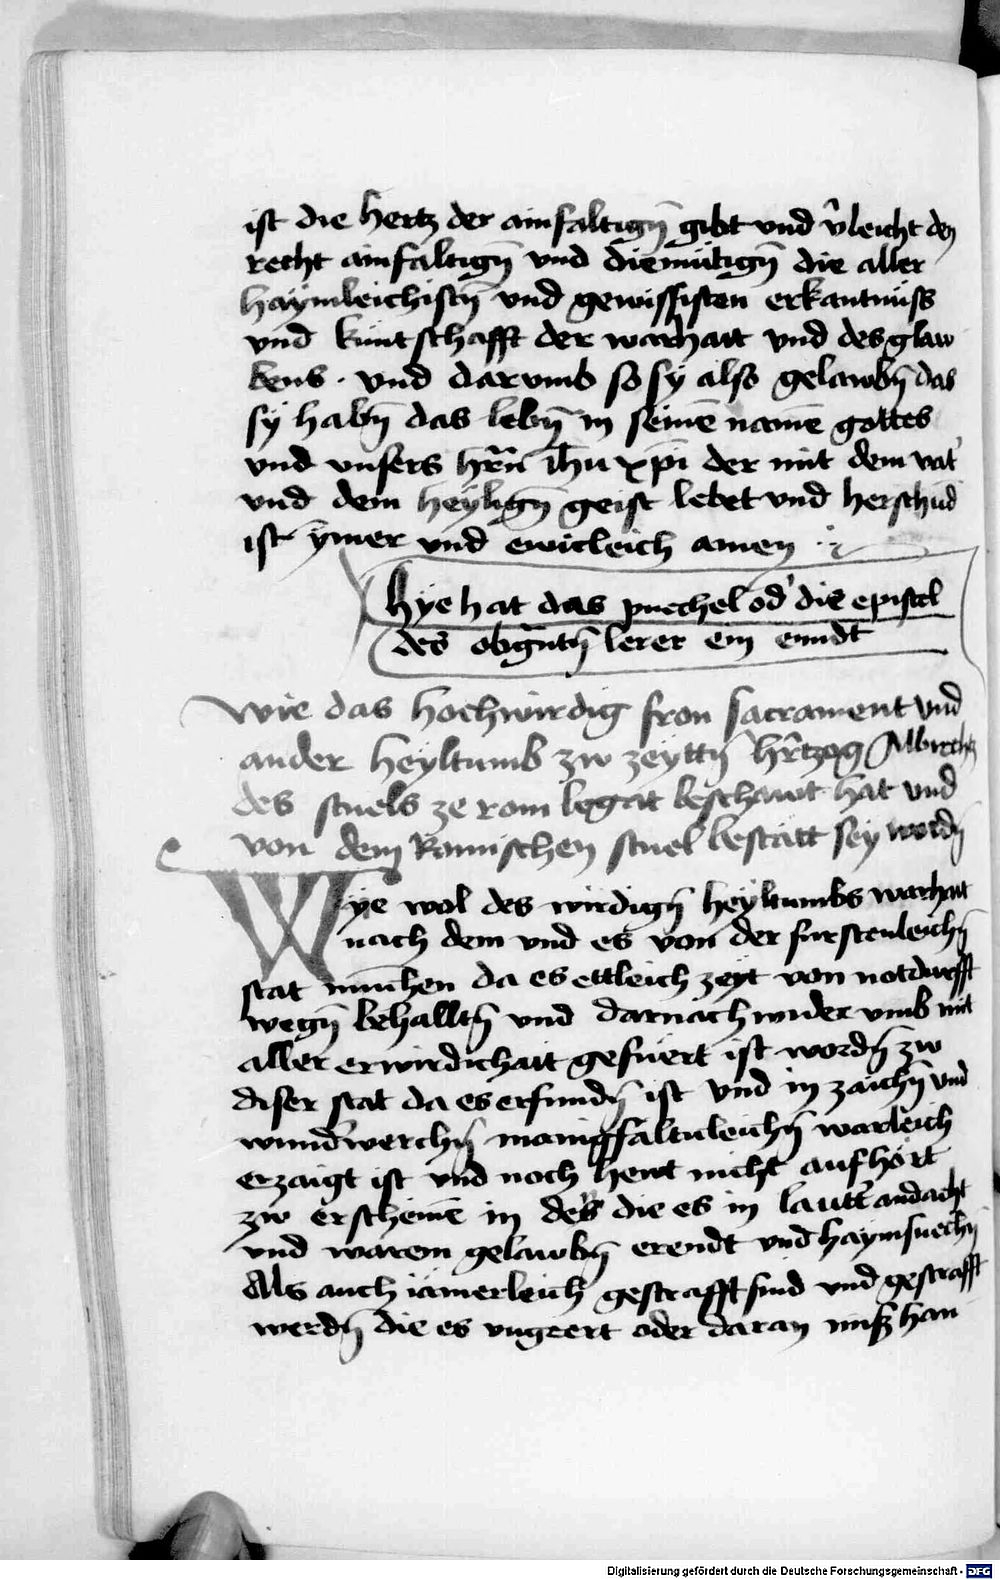 ist die hertz der ainfaltign̄ gibt und v̓leicht den
recht ainfaltign̄ vnd diemütign̄ die aller
haymleichistn̄ vnd gewissisten erkantnüss
vnd kuntschafft der warhait vnd des glaw
bens · vnd darvmb so sy also gelawbn̄ das
sy habn̄ das lebn̄ in seinē namē gottes
vnd vnsers hr̄n ih̄u xp̄i der mit dem vat̓
vnd dem heylign̄ geist lebet vnd herschūd
ist ymer vnd ewicleich amen
hye hat das puechel od̓ die epistel
des obgn̄utn̄ lerer ein enndt
Wie das hochwirdig fron sacrament vnd
ander heyltumb zw zeyttn̄ hr̄tzog Albrechtz
des stuels ze rom legat beschawt hat vnd
von dem Romischen stuel bestätt sey wordn̄
Wye wol des wirdign̄ heyltumbs warhait
nach dem vnd es von der furstenleichn̄
stat münchen da es ettleich zeyt von notdurfft
wegn̄ behalltn̄ vnd darnach wider vmb mit
aller erwirdichait gefuert ist wordn̄ zw
diser stat da es erfundn̄ ist vnd in zaichn̄ vnd
wund̓werchn̄ manigfalticleichn̄ warleich
erzaigt ist vnd noch hewt nicht aufhört
zw erscheinē in den die es in lautt̓ andacht
vnd warem gelawbn̄ erendt vnd haymsuechn̄
Als auch iämerleich gestrafft sind vnd gestrafft
werdn̄ die es vngeert oder daran misshan
Digitalisierung gefördert durch die Deutsche Forschungsgemeinschaft - DFG